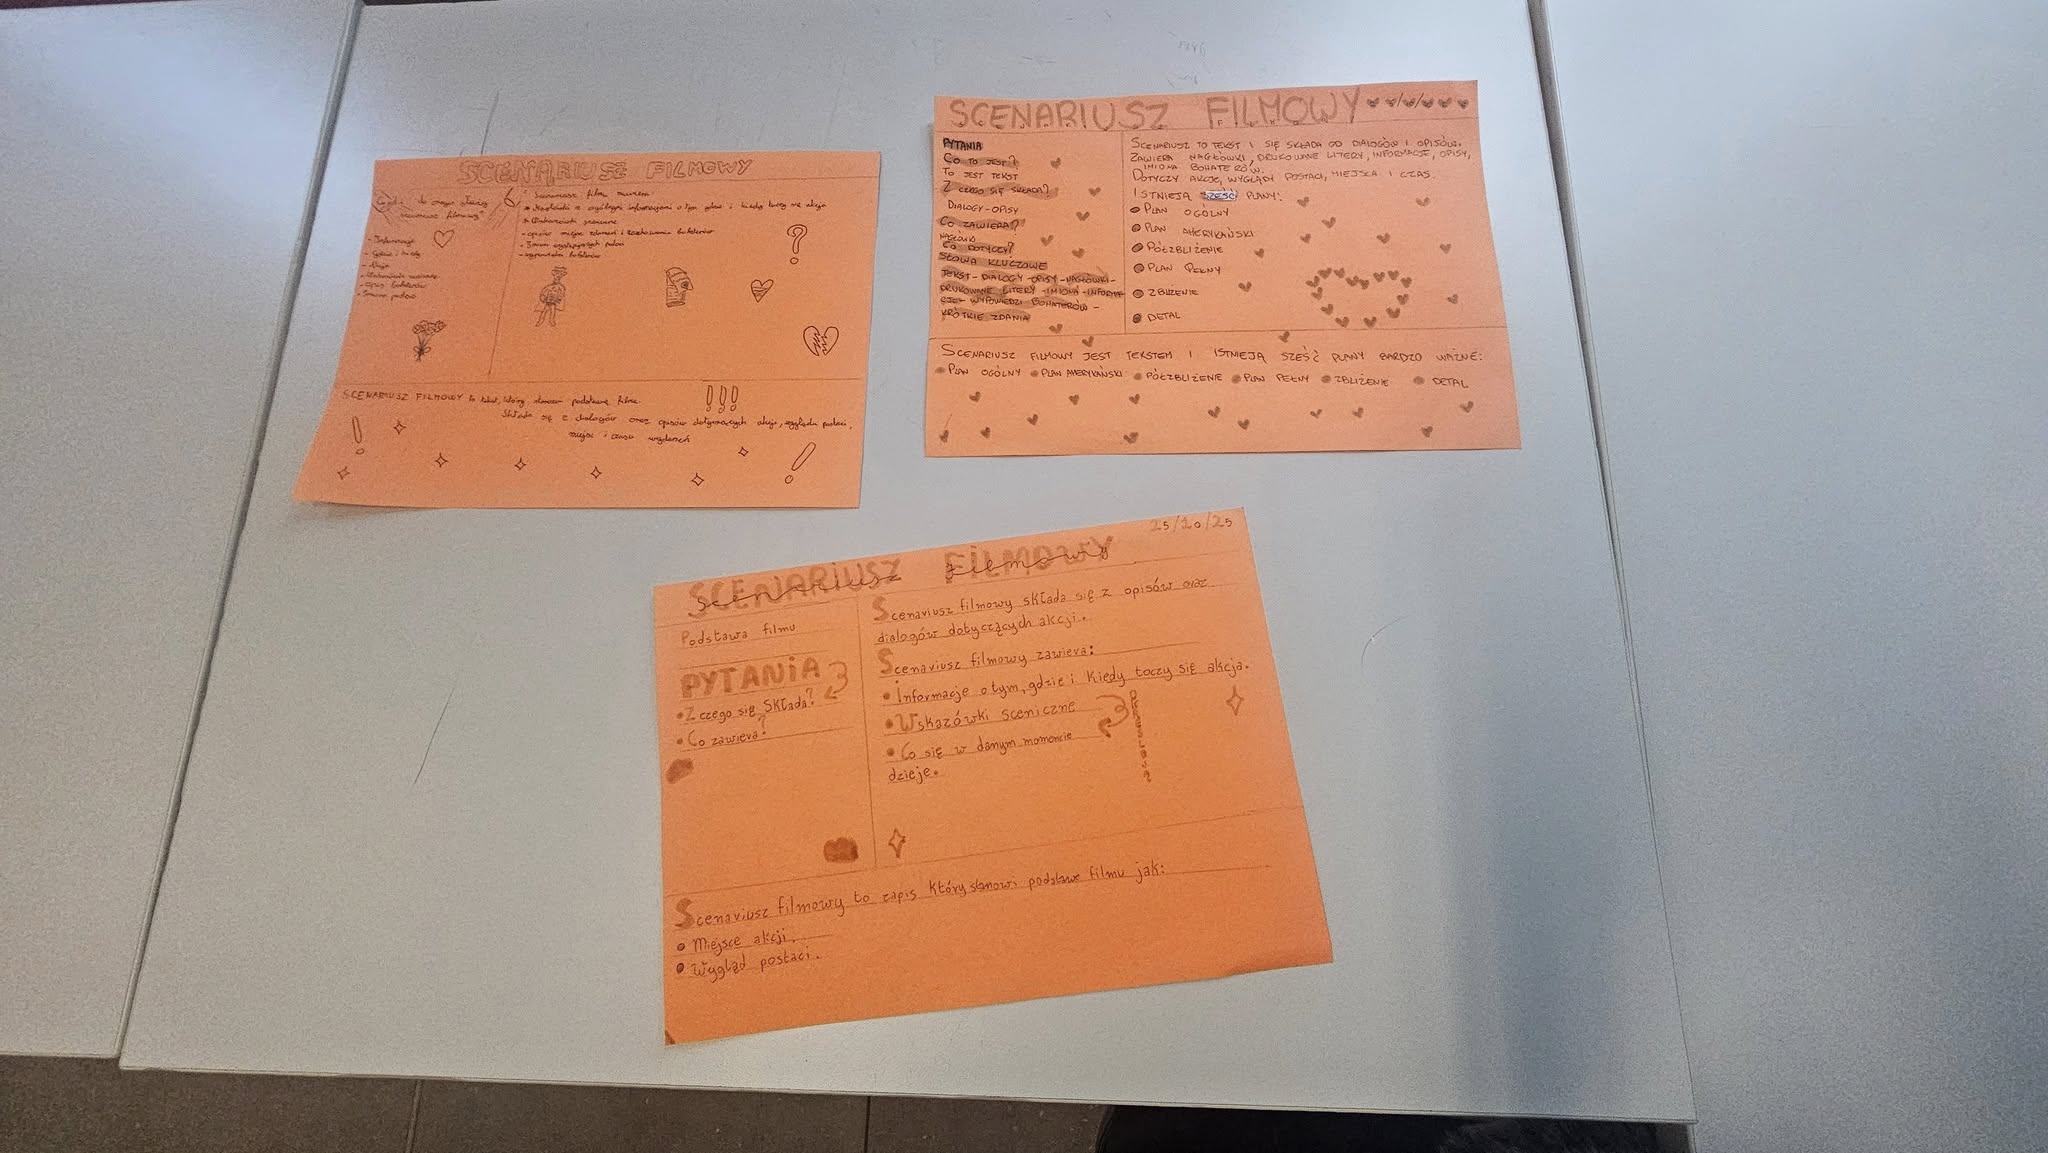 SCENARIUSZ FILMOWY
- Informacje
- Gdzie i kiedy
- Akcja
- Wskazówki sceniczne
- Opis bohaterów
- Imiona postaci
Scenariusz filmu
• Nagłówki z ogólnymi informacjami o tym gdzie i kiedy toczy się akcja
• Wskazówki sceniczne
• opisów miejsc zdarzeń i zachowania bohaterów
• Imiona występujących postaci
SCENARIUSZ FILMOWY to tekst, który stanowi podstawę filmu.
!!!
Składa się z dialogów oraz opisów dotyczących akcji, wyglądu postaci,
miejsc i czasu wydarzeń
SCENARIUSZ FILMOWY
PYTANIA
CO TO JEST?
TO JEST TEKST
Z CZEGO SIĘ SKŁADA?
DIALOGY - OPISY
CO ZAWIERA?
NAGŁÓWKI
CO DOTYCZY?
SŁOWA KLUCZOWE
TEKST - DIALOGY - OPISY - NAGŁÓWKI -
DRUKOWANE LITERY - IMIONA - INFORMA
CJE - WYPOWIEDZI BOHATERÓW -
KRÓTKIE ZDANIA
SCENARIUSZ TO TEKST I SIĘ SKŁADA OD DIALOGÓW I OPISÓW.
ZAWIERA NAGŁÓWKI, DRUKOWANE LITERY, INFORMACJE, OPISY,
IMIONA BOHATERÓW.
DOTYCZY AKCJE, WYGLĄDY POSTACI, MIEJSCA I CZAS.
ISTNIEJĄ SZEŚĆ PLANY:
• PLAN OGÓLNY
• PLAN AMERYKAŃSKI
• PÓŁZBLIŻENIE
• PLAN PEŁNY
• ZBLIŻENIE
• DETAL
SCENARIUSZ FILMOWY JEST TEKSTEM I ISTNIEJĄ SZEŚĆ PLANY BARDZO WAŻNE:
• PLAN OGÓLNY • PLAN AMERYKAŃSKI • PÓŁZBLIŻENIE • PLAN PEŁNY • ZBLIŻENIE • DETAL
25/10/25
SCENARIUSZ FILMOWY
Scenariusz filmowy
Podstawa filmu
PYTANIA
• Z czego się składa?
• Co zawiera?
Scenariusz filmowy składa się z opisów oraz
dialogów dotyczących akcji.
Scenariusz filmowy zawiera:
• Informacje o tym, gdzie i kiedy toczy się akcja.
• Wskazówki sceniczne
• Co się w danym momencie
dzieje.
Scenariusz filmowy to zapis który stanowi podstawe filmu jak:
• Miejsce akcji.
• Wygląd postaci.